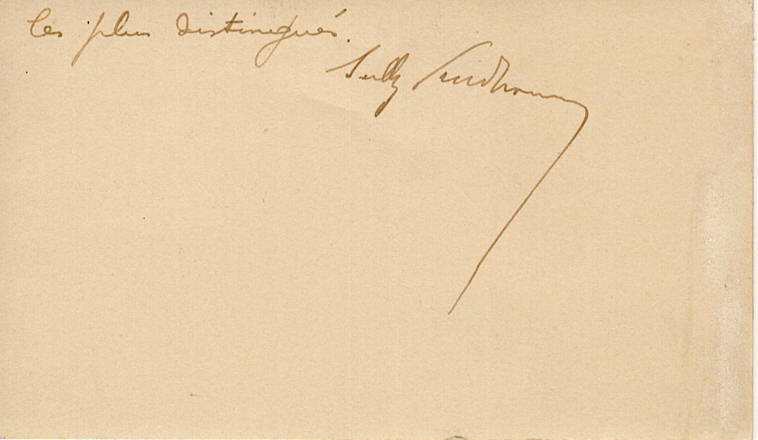 les plus distingués.
Sully Prudhomme